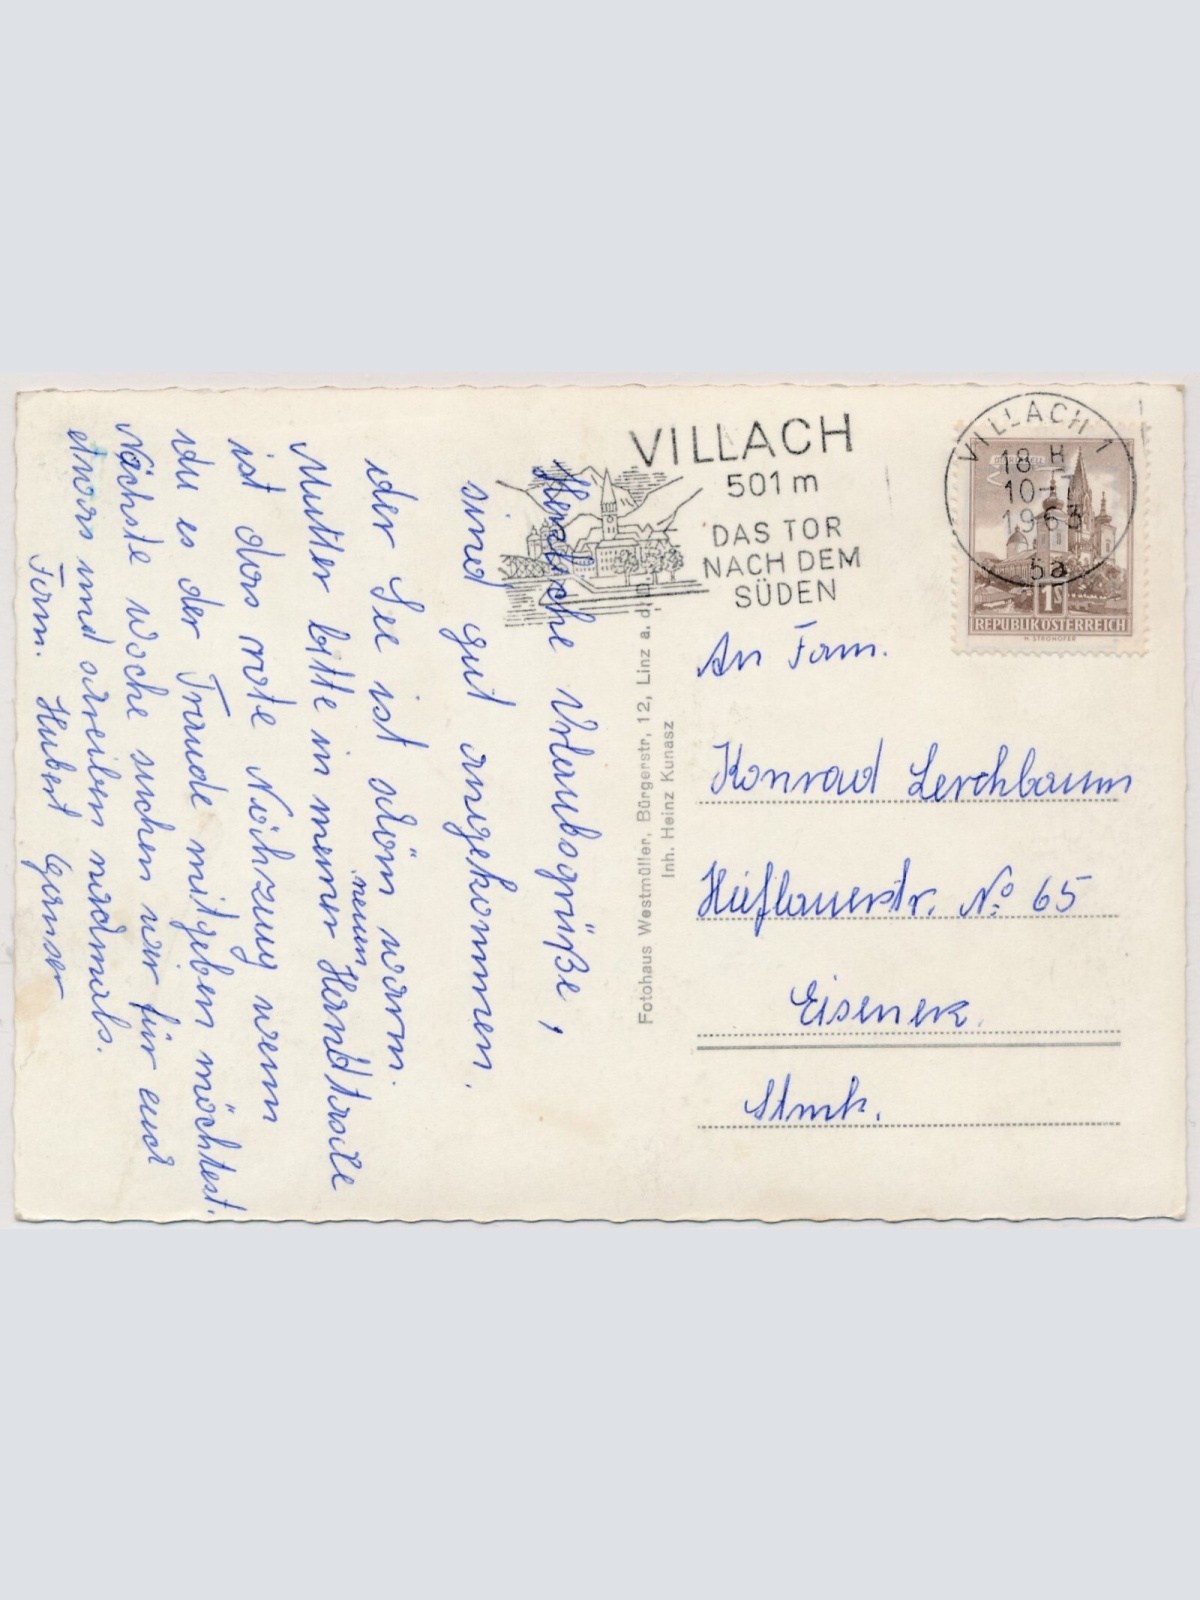 VILLACH
501 m
DAS TOR
NACH DEM
SÜDEN
VILLACH 1
18 H
10-7
1963
5a
1S
REPUBLIK ÖSTERREICH
H. STROHOFER
An Fam.
Konrad Lerchbaum
Hieflauerstr. No 65
Eisenerz.
Stmk.
Fotohaus Westmüller, Bürgerstr, 12, Linz a. d.
Inh. Heinz Kunasz
Herzliche Urlaubsgrüße,
sind gut angekommen.
der See ist schön warm.
Mutter bitte in meiner neuen Handtasche
ist das rote Nähzeug wenn
du es der Traude mitgeben möchtest.
Nächste woche suchen wir für euch
etwas und schreiben nochmals.
Fam. Hubert